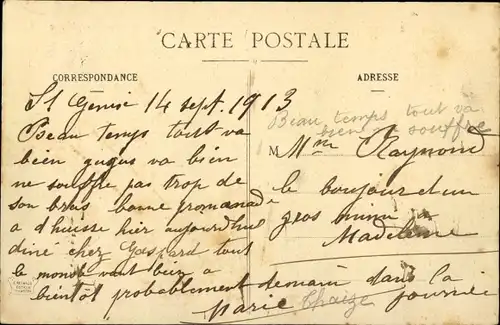 CARTE POSTALE
CORRESPONDANCE
ADRESSE
St Genis 14 sept. 1913
Beau temps tout va
bien gugus va bien
ne souffre pas trop de
son bras bonne promenade
a d'huisse hier aujourd'hui
diné chez Gaspard tout
le monde vont bien a
bientôt probablement demain dans la
journée
Marie Chaize
Beau temps tout va
bien souffre
M Mme Raymond
le boujour d'un
gros minu a
Madeleine